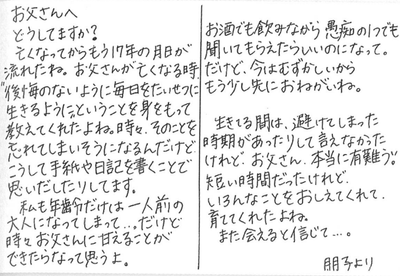 お父さんへ
どうしてますか？
亡くなってからもう17年の月日が
流れたね。お父さんが亡くなる時、
"後悔のないように毎日をたいせつに
生きるように"ということを身をもって
教えてくれたよね。時々、そのことを
忘れてしまいそうになるんだけど
こうして手紙や日記を書くことで
思いだしたりしてます。
私も年齢だけは一人前の
大人になってしまって…。だけど
時々お父さんに甘えることが
できたらなって思うよ。
お酒でも飲みながら愚痴の1つでも
聞いてもらえたらいいのになって。
だけど、今はむずかしいから
もう少し先におねがいね。
生きてる間は、避けてしまった
時期があったりして言えなかった
けれど、お父さん、本当に有難う!!
短い時間だったけれど、
いろんなことをおしえてくれて、
育ててくれたよね。
また会えると信じて…。
朋子より